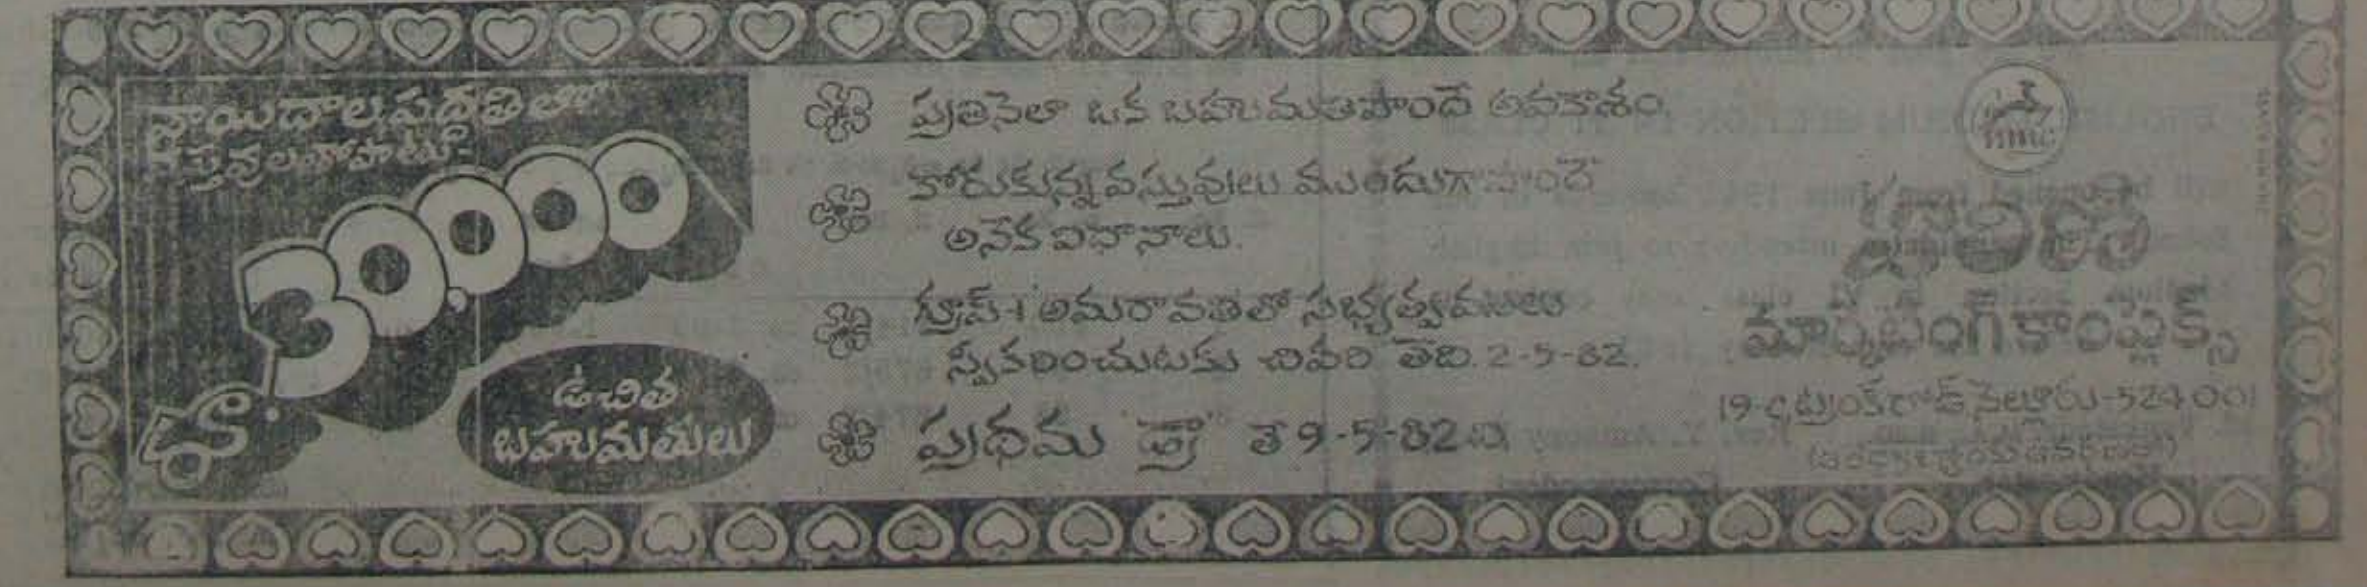 వాయిదాల పద్ధతిలో
వస్తువులతోపాటు-
రూ. 30,000
ఉచిత
బహుమతులు
ప్రతినెలా ఒక బహుమతిపొందే అవకాశం.
కోరుకున్న వస్తువులు ముందుగా పొందే
అనేక విధానాలు.
గ్రూప్-1 అమరావతిలో సభ్యత్వములు
స్వీకరించుటకు చివరి తేది. 2-5-82.
ప్రథమ "డ్రా" తే 9-5-82ది
మార్కెటింగ్ కాంప్లెక్స్
ట్రంక్ రోడ్, నెల్లూరు-524 001